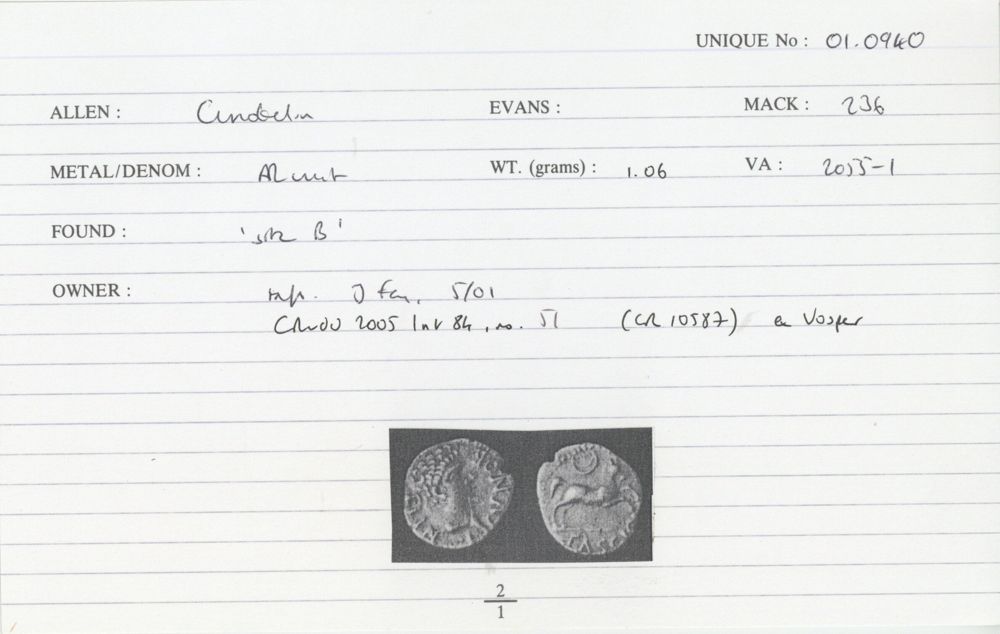 UNIQUE No : 01.0940
ALLEN : Cunobelin EVANS : MACK : 236
METAL/DENOM : AR unit WT. (grams) : 1.06 VA : 2055-1
FOUND : 'site B'
OWNER : 5/01
2005 84, no. 51 (CR 10587) ex Vosper
TASC
2
1